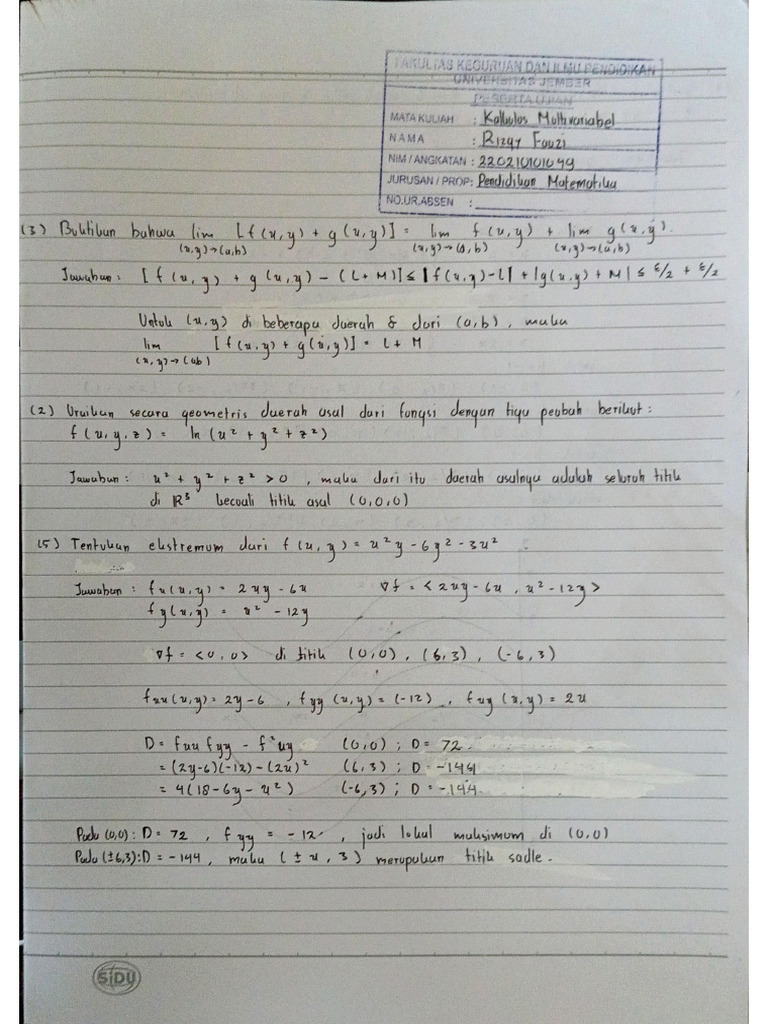 FAKULTAS KEGURUAN DAN ILMU PENDIDIKAN
UNIVERSITAS JEMBER
PESERTA UJIAN
MATA KULIAH : Kalkulus Multivariabel
NAMA : Rizqy Fauzi
NIM / ANGKATAN : 220210101099
JURUSAN / PROP : Pendidikan Matematika
NO.UR.ABSEN :
(3) Buktikan bahwa lim [f(x,y) + g(x,y)] = lim f(x,y) + lim g(x,y).
(x,y)→(a,b) (x,y)→(a,b) (x,y)→(a,b)
Jawaban : [f(x,y) + g(x,y) - (L+M)] ≤ |f(x,y)-L| + |g(x,y) + M| ≤ ε/2 + ε/2
Untuk (x,y) di beberapa daerah δ dari (a,b), maka
lim [f(x,y) + g(x,y)] = L + M
(x,y)→(a,b)
(2) Uraikan secara geometris daerah asal dari fungsi dengan tiga peubah berikut :
f(x,y,z) = ln(x² + y² + z²)
Jawaban : x² + y² + z² > 0, maka dari itu daerah asalnya adalah seluruh titik
di R³ kecuali titik asal (0,0,0)
(5) Tentukan ekstremum dari f(x,y) = x²y - 6y² - 3x²
Jawaban : fx(x,y) = 2xy - 6x ∇f = <2xy - 6x, x² - 12y>
fy(x,y) = x² - 12y
∇f = <0,0> di titik (0,0), (6,3), (-6,3)
fxx(x,y) = 2y-6, fyy(x,y) = (-12), fxy(x,y) = 2x
D = fxx fyy - f²xy (0,0) ; D = 72
= (2y-6)(-12) - (2x)² (6,3) ; D = -144
= 4(18 - 6y - x²) (-6,3) ; D = -144
Pada (0,0) : D = 72, fyy = -12, jadi lokal maksimum di (0,0)
Pada (±6,3) : D = -144, maka (±x, 3) merupakan titik sadle.
SiDU